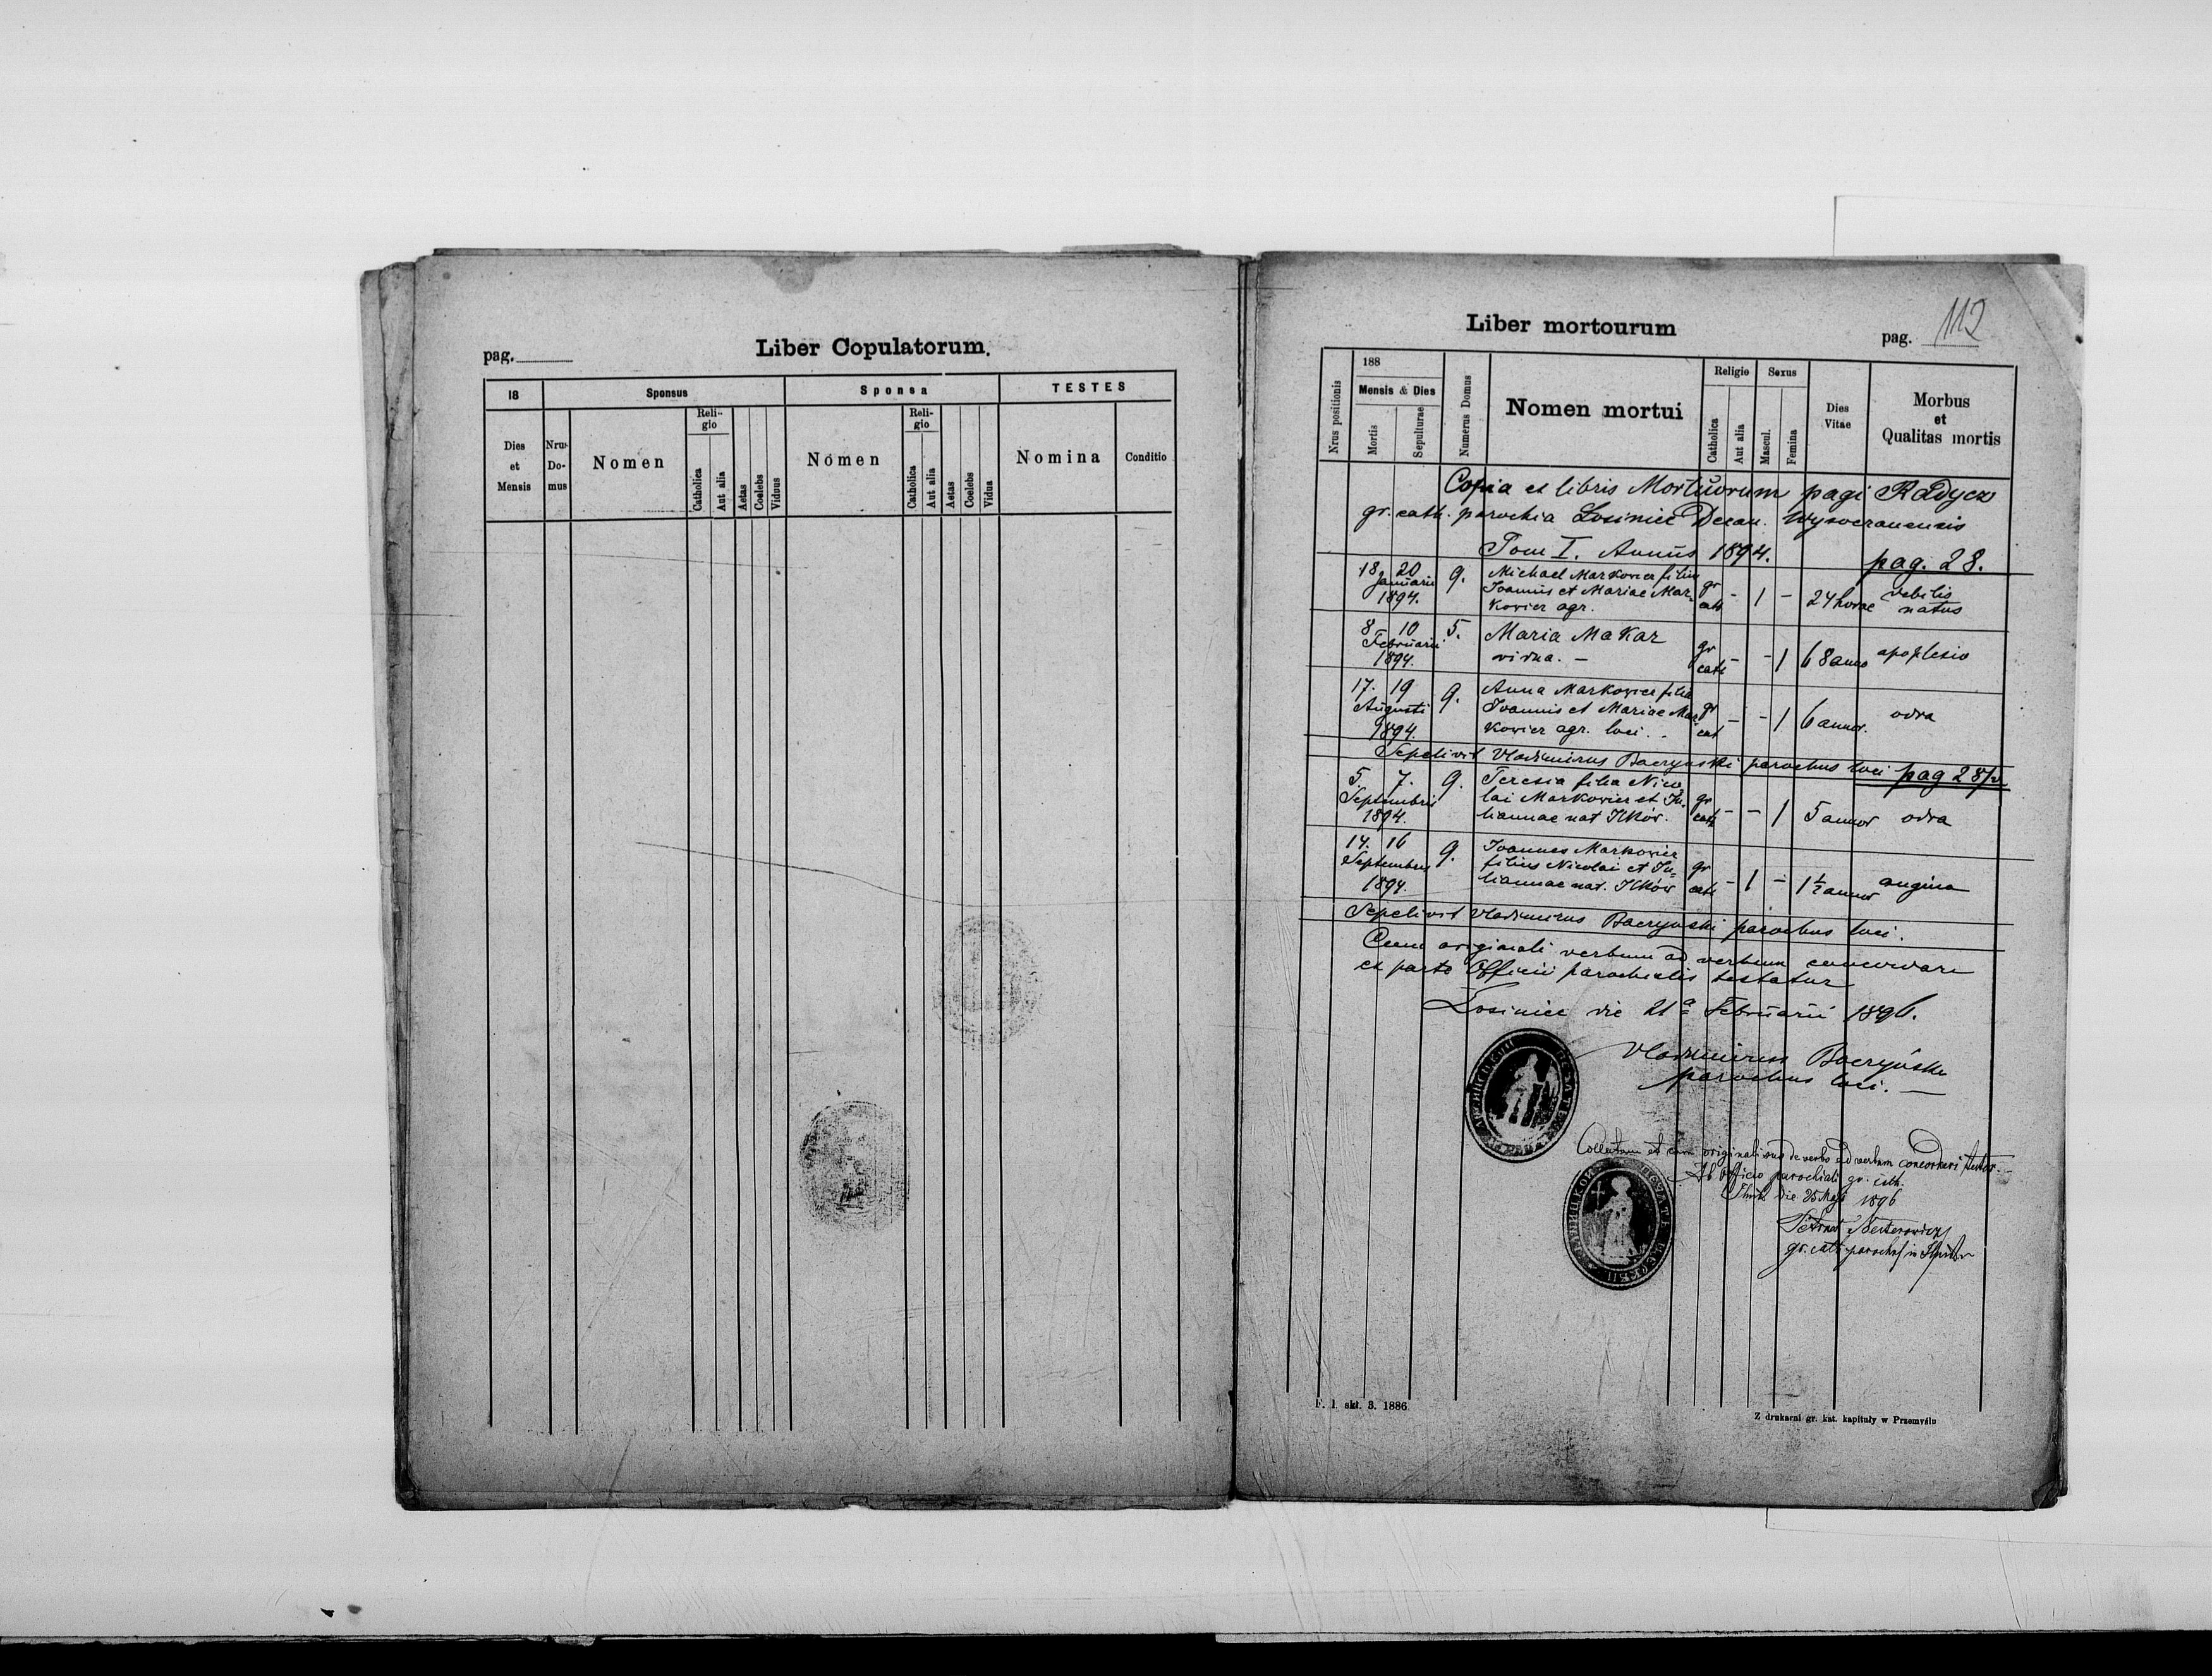 pag.
Liber Copulatorum.
18
Sponsus
Sponsa
TESTES
Dies et Mensis
Nrus Domus
Nomen
Religio
Catholica
Aut alia
Aetas
Coelebs
Viduus
Nomen
Religio
Catholica
Aut alia
Aetas
Coelebs
Vidua
Nomina
Conditio
Liber mortourum
pag. 112
Nrus positionis
188
Mensis & Dies
Mortis
Sepulturae
Numerus Domus
Nomen mortui
Religio
Catholica
Aut alia
Sexus
Mascul.
Femina
Dies Vitae
Morbus
et
Qualitas mortis
Copia et libris Mortuorum pagi Radycz
gr. cath. parochia Losiniec Decan.
Tom I. Annus 1894. pag. 28.
18 20 9. Michael Markovicz filius
Januarii Joannis et Mariae Mar- gr - 1 - 24 horae debilis
1894. kovicz agr. cath natus
8 10 5. Maria Makar
Februarii vidua. - gr - - 1 68 anno apoplexio
1894. cath
17. 19 9. Anna Markovicz filia
Augusti Joannis et Mariae Mar gr - - 1 6 annor. odra
1894. kovicz agr. loci. cat
Sepelivit Vladimirus Baczynski parochus loci pag 28/v.
5 7. 9. Teresia filia Nico
Septembris lai Markovicz et Ju- gr - - 1 5 annor odra
1894. liannae nat Ilków. cath
14. 16 9. Joannes Markovicz
Septembris filius Nicolai et Ju- gr - 1 - 1½ annor angina
1894. liannae nat. Ilków cath
Sepelivit Vladimirus Baczynski parochus loci.
Cum originali verbum ad verbum concordare
ex parte Officii parochialis testatur
Losiniec die 21ª Februarii 1896.
Vladimirus Baczyński
parochus loci. —
Collatum et cum originali de verbo ad verbum concordari testor. -
Ab officio parochiali gr. cath.
die 25 Maji 1896
Petrus Nesterowicz
gr. cath. parochus in
F. l. skł. 3. 1886
Z drukarni gr. kat. kapituły w Przemyślu